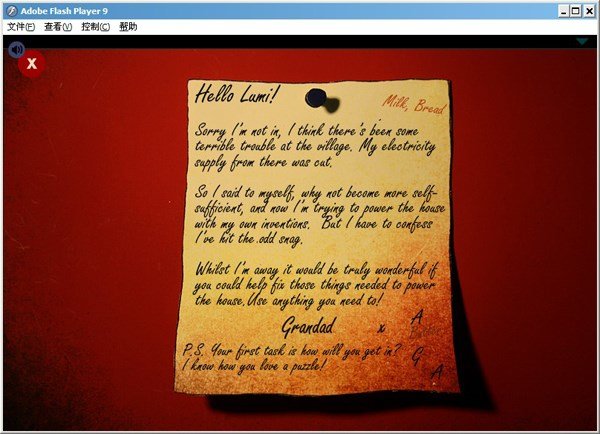 Adobe Flash Player 9
文件(F) 查看(V) 控制(C) 帮助
X
Hello Lumi!
Milk, Bread
Sorry I'm not in, I think there's been some
terrible trouble at the village. My electricity
supply from there was cut.
So I said to myself, why not become more self-
sufficient, and now I'm trying to power the house
with my own inventions. But I have to confess
I've hit the odd snag.
Whilst I'm away it would be truly wonderful if
you could help fix those things needed to power
the house. Use anything you need to!
Grandad x
A
P.S. Your first task is how will you get in?
G
I know how you love a puzzle!
A